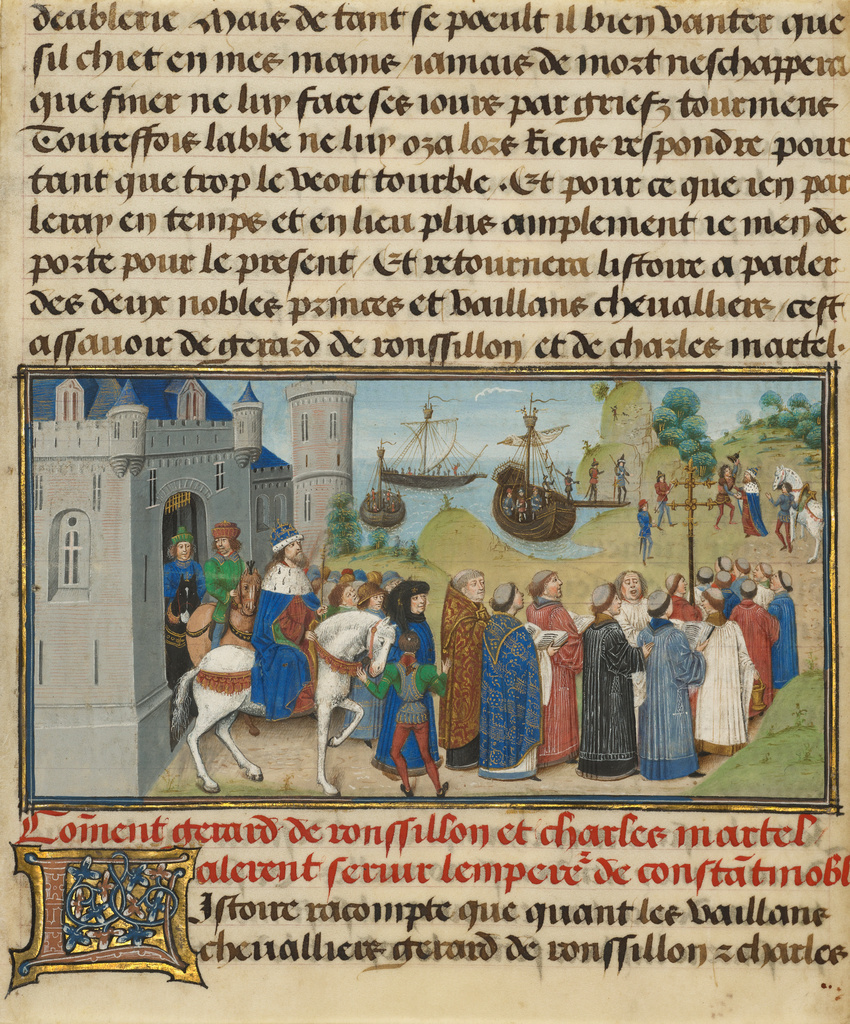 deablerie Mais de tant se poeult il bien vanter que
sil chiet en mes mains iamais de mort neschappera
que finer ne luy face ses iours par griefz tourmens
Touteffois labbe ne luy oza lors riens respondre pour
tant que trop le veoit tourble . Et pour ce que ien par
leray en temps et en lieu plus amplement ie men de
porte pour le present / Et retournera listoire a parler
des deux nobles princes et vaillans cheualliers / cest
assauoir de gerard de ronssillon et de charles martel.
Com̄ent gerard de ronssillon et charles martel
alerent seruir lempereʳ de constātinobl
Istoire racompte que quant les vaillans
cheualliers gerard de ronssillon ⁊ charles